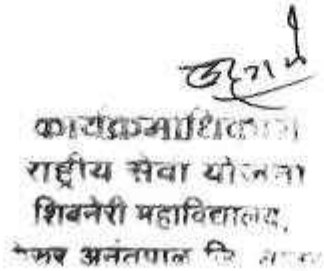 कार्यक्रमाधिकारी
राष्ट्रीय सेवा योजना
शिवनेरी महाविद्यालय,
अनंतपाळ जि.